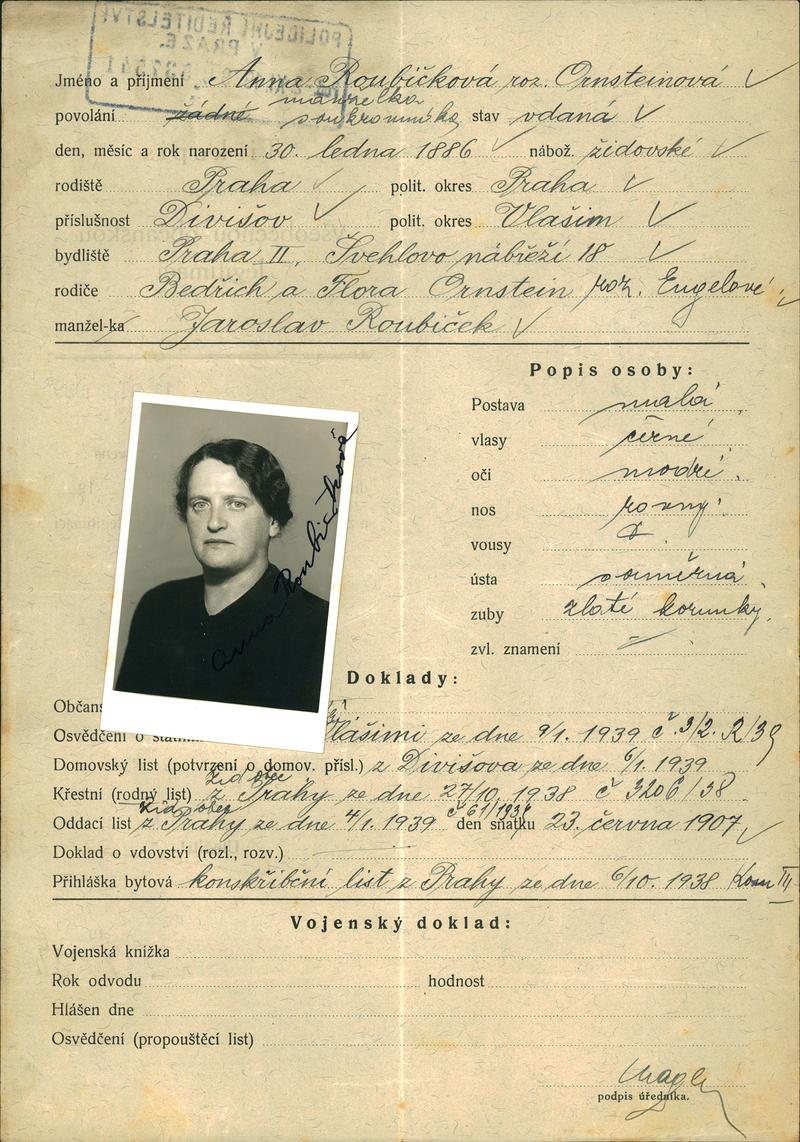 POLICEJNÍ ŘEDITELSTVÍ
V PRAZE.
Jméno a příjmení Anna Roubíčková roz. Ornsteinová
manželka
povolání žádné soukromníka stav vdaná
den, měsíc a rok narození 30. ledna 1886 nábož. židovské
rodiště Praha polit. okres Praha
příslušnost Divišov polit. okres Vlašim
bydliště Praha II, Švehlovo nábřeží 18
rodiče Bedřich a Flora Ornstein roz. Engelové
manžel-ka Jaroslav Roubíček
Popis osoby:
Postava malá
vlasy černé
oči modré
nos rovný
vousy
ústa souměrná
zuby zlaté korunky
zvl. znamení
Anna Roubíčková
Doklady:
Občans
Osvědčení o státn Vlašimi ze dne 9/1. 1939 č. 3/2. R/39
Domovský list (potvrzení o domov. přísl.) z Divišova ze dne 6/1. 1939
žid. obec
Křestní (rodný list) z Prahy ze dne 27/10. 1938 č 3206/38
žid. obec č 61/1939
Oddací list z Prahy ze dne 4/1. 1939 den sňatku 23. června 1907
Doklad o vdovství (rozl., rozv.)
Přihláška bytová konskribční list z Prahy ze dne 6/10. 1938 Kom III
Vojenský doklad:
Vojenská knížka
Rok odvodu hodnost
Hlášen dne
Osvědčení (propouštěcí list)
podpis úředníka.